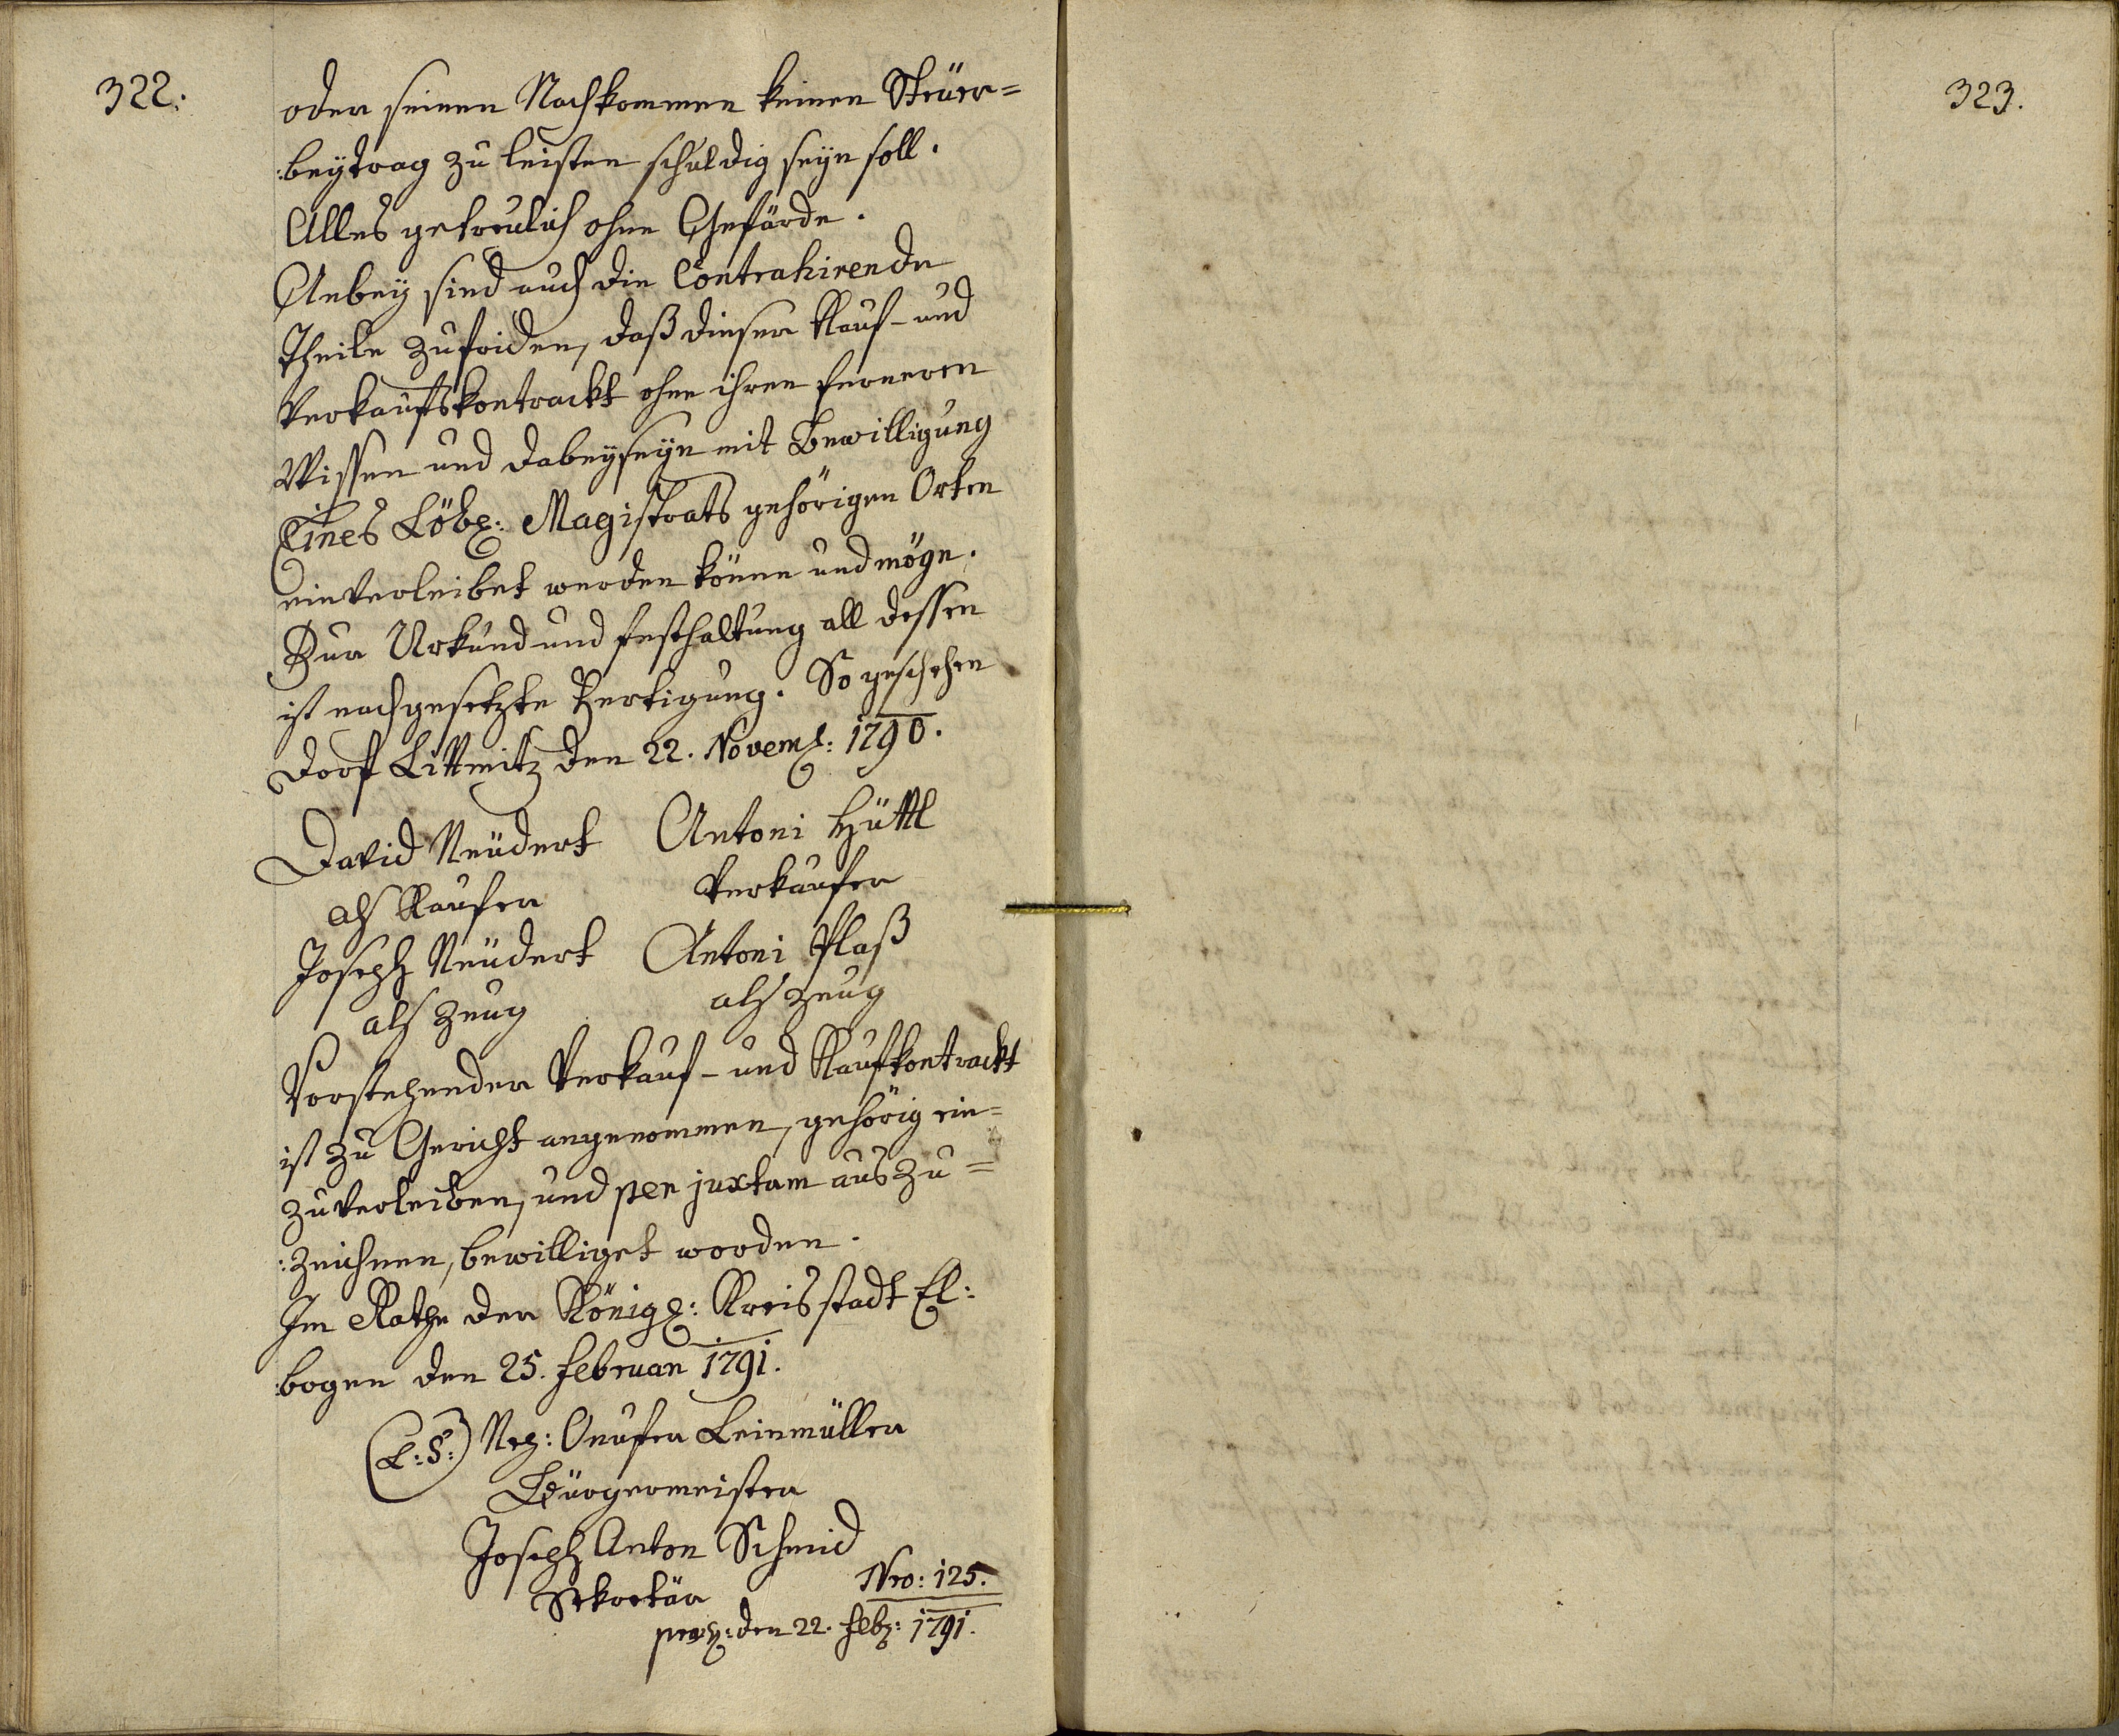 322.
oder seinen Nachkommen keinen Steüer=
:beÿtrag zu leisten schuldig seÿn soll.
Alles getreulich ohne Gefärde.
Anbeÿ sind auch die Contrahirende
Theile zufriden, daß dieser Kauf- und
Verkaufskontrackt ohne ihren ferneren
Wissen und Dabeÿseÿn mit Bewilligung
Eines Löbl: Magistrats gehörigen Orten
einverleibet werden könne und möge.
Zur Urkund und Festhaltung all dessen
ist nachgesetzte Fertigung. So geschehen
Dorf Littmitz den 22. Novemb: 1790.
David Neüdert Antoni Hüttl
als Kaufer Verkaufer
Joseph Neüdert Antoni Plaß
als Zeug als Zeug
Vorstehender Verkauf- und Kaufkontrackt
ist zu Gericht angenommen, gehörig ein=
zuverleiben, und per juxtam auszu=
:zeichnen, bewilliget worden.
Im Rathe der Königl: Kreisstadt El:
:bogen den 25. Februar 1791.
(L:S:) Onufer Leinmüller
Bürgermeister
Joseph Anton Schmid
Sekretär
Nro: 125.
praes: den 22. Feb: 1791.
323.